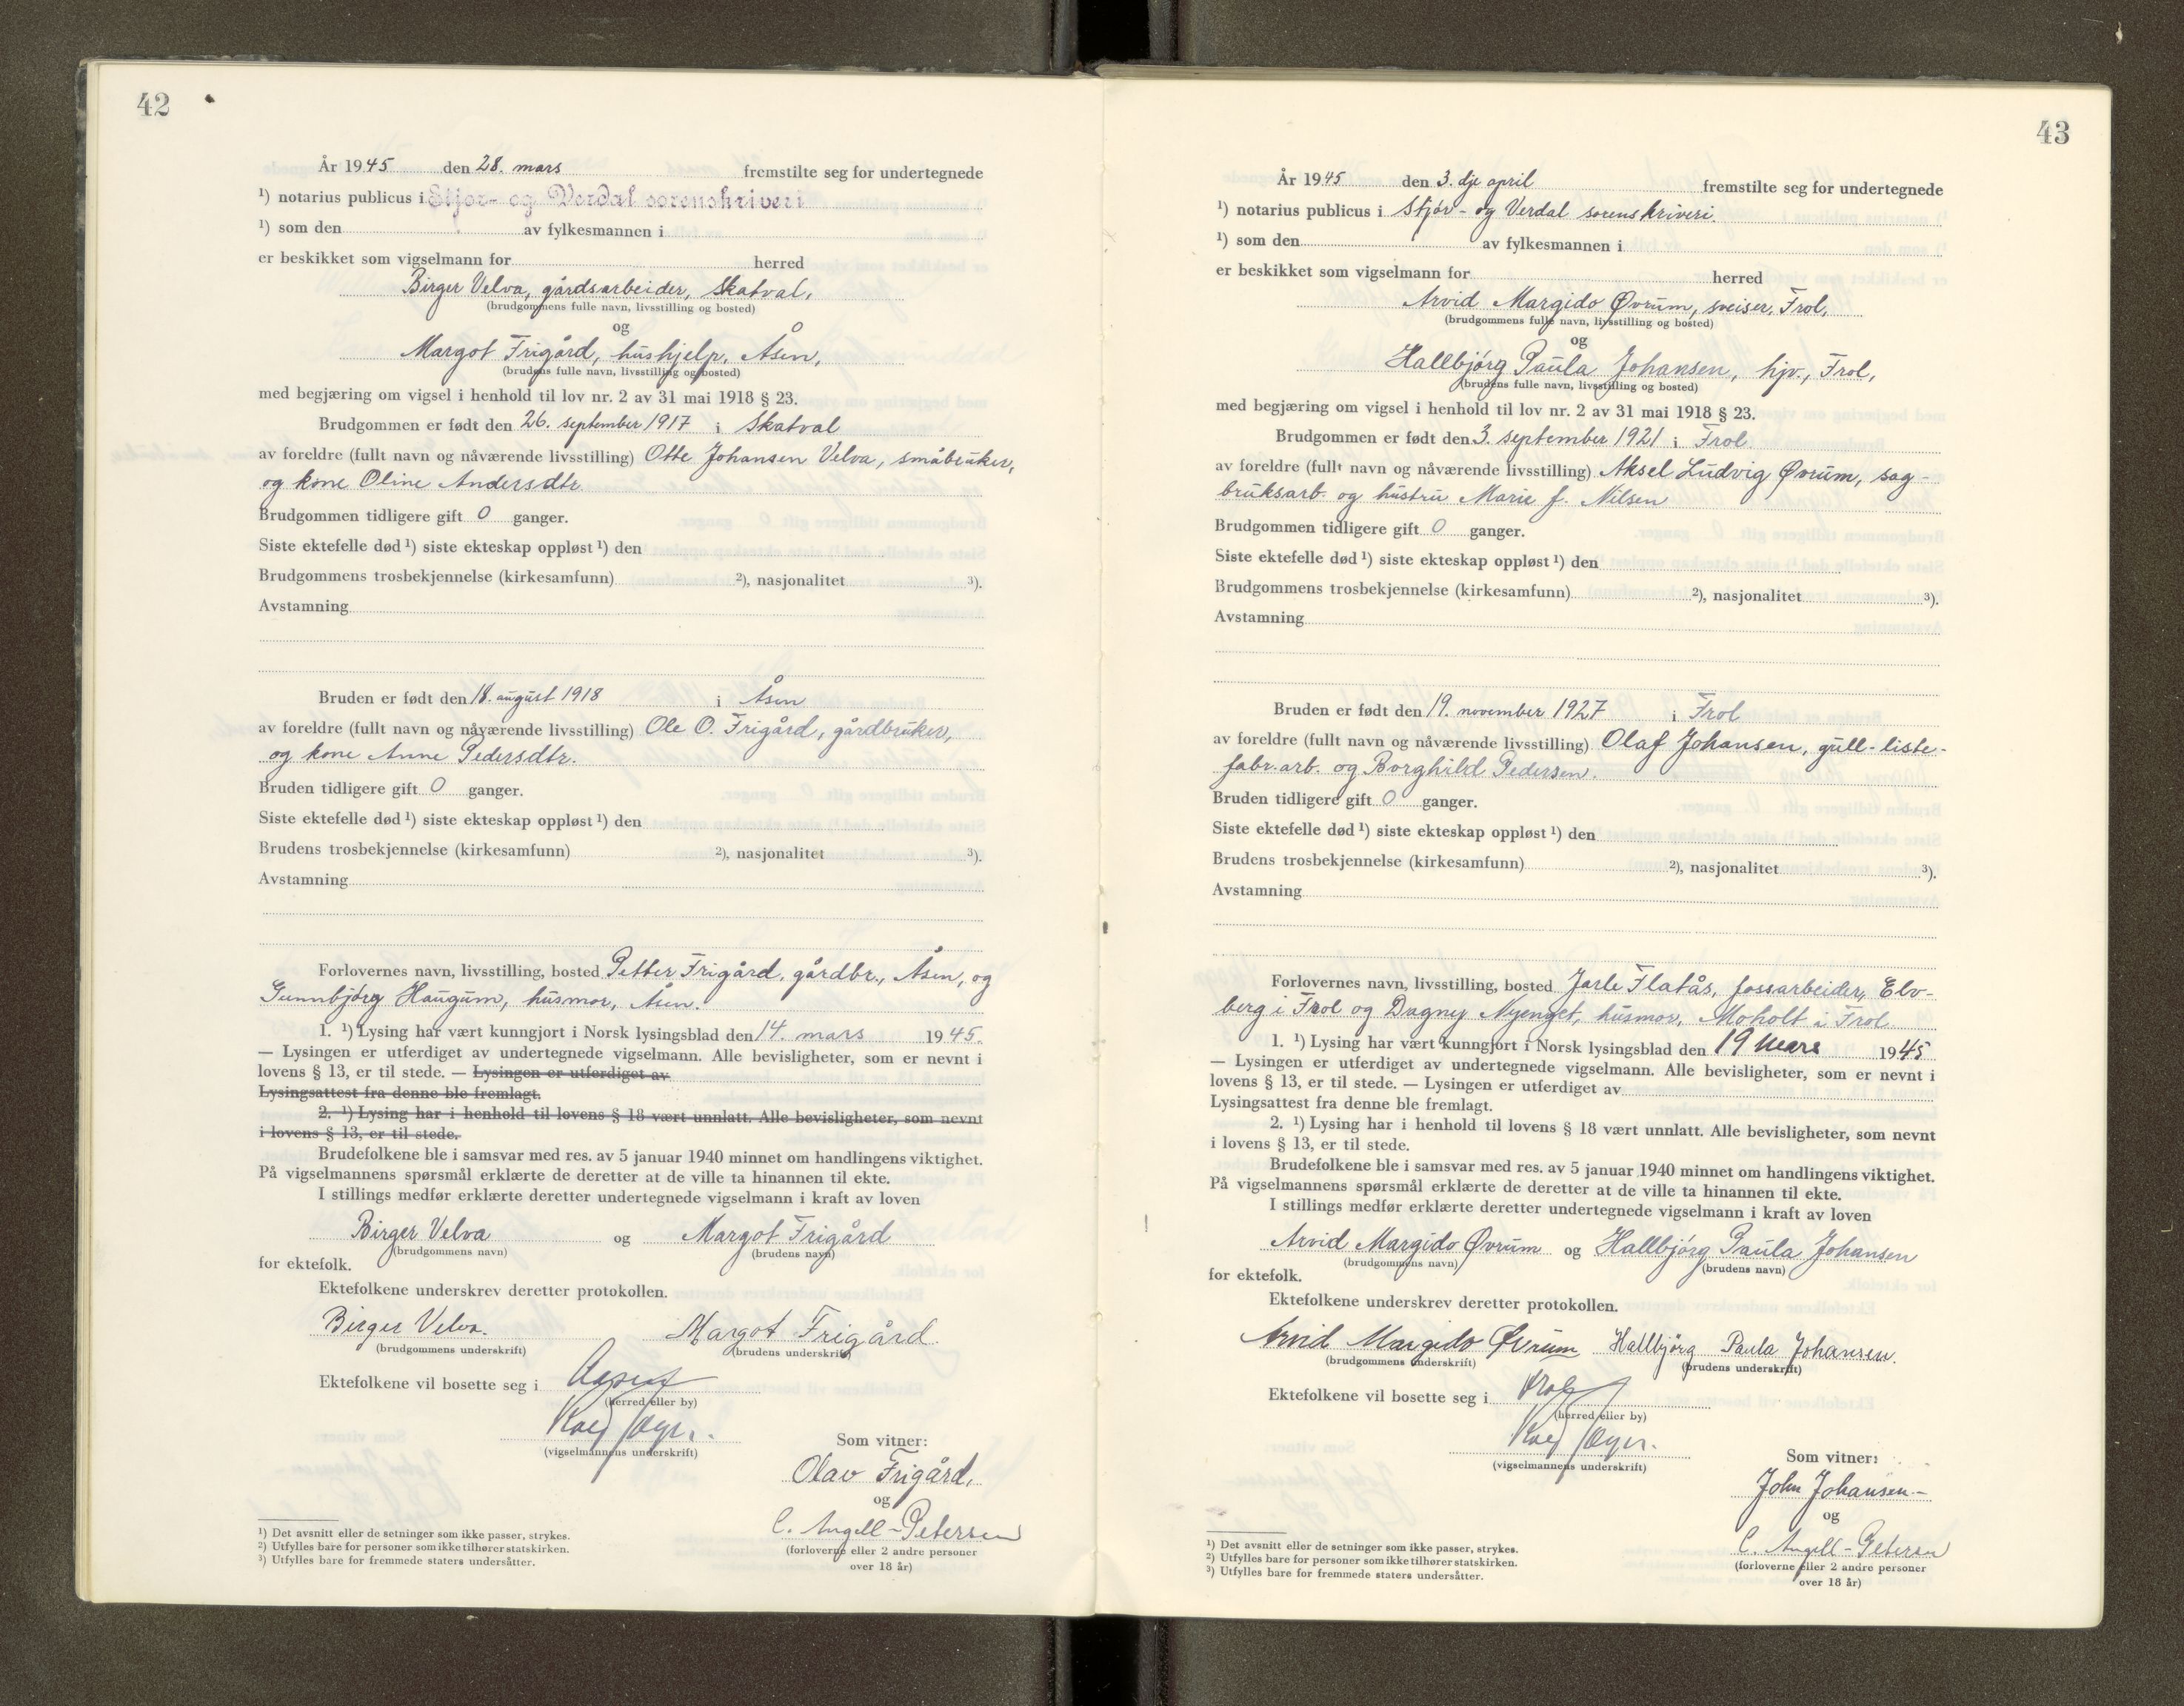 42
År 1945 den 28. mars fremstilte seg for undertegnede
¹) notarius publicus i Stjør- og Verdal sorenskriveri
¹) som den av fylkesmannen i
er beskikket som vigselmann for herred
Birger Velva, gårdsarbeider, Skatval,
(brudgommens fulle navn, livsstilling og bosted)
og
Margot Frigård, hushjelp, Åsen,
(brudens fulle navn, livsstilling og bosted)
med begjæring om vigsel i henhold til lov nr. 2 av 31 mai 1918 § 23.
Brudgommen er født den 26. september 1917 i Skatval
av foreldre (fullt navn og nåværende livsstilling) Otte Johansen Velva, småbruker,
og kone Oline Andersdtr.
Brudgommen tidligere gift 0 ganger.
Siste ektefelle død ¹) siste ekteskap oppløst ¹) den
Brudgommens trosbekjennelse (kirkesamfunn) ²), nasjonalitet ³).
Avstamning
Bruden er født den 18. august 1918 i Åsen
av foreldre (fullt navn og nåværende livsstilling) Ole O. Frigård, gårdbruker,
og kone Anne Pedersdtr.
Bruden tidligere gift 0 ganger.
Siste ektefelle død ¹) siste ekteskap oppløst ¹) den
Brudens trosbekjennelse (kirkesamfunn) ²), nasjonalitet ³).
Avstamning
Forlovernes navn, livsstilling, bosted Petter Frigård, gårdbr., Åsen, og
Gunnbjørg Haugum, husmor, Åsen.
1. ¹) Lysing har vært kunngjort i Norsk lysingsblad den 14. mars 1945.
— Lysingen er utferdiget av undertegnede vigselmann. Alle bevisligheter, som er nevnt i
lovens § 13, er til stede. — Lysingen er utferdiget av
Lysingsattest fra denne ble fremlagt.
2. ¹) Lysing har i henhold til lovens § 18 vært unnlatt. Alle bevisligheter, som nevnt
i lovens § 13, er til stede.
Brudefolkene ble i samsvar med res. av 5 januar 1940 minnet om handlingens viktighet.
På vigselmannens spørsmål erklærte de deretter at de ville ta hinannen til ekte.
I stillings medfør erklærte deretter undertegnede vigselmann i kraft av loven
Birger Velva og Margot Frigård
(brudgommens navn) (brudens navn)
for ektefolk.
Ektefolkene underskrev deretter protokollen.
Birger Velva. Margot Frigård
(brudgommens underskrift) (brudens underskrift)
Ektefolkene vil bosette seg i
(herred eller by)
(vigselmannens underskrift)
Som vitner:
Olav Frigård,
og
C. Angell-Petersen
(forloverne eller 2 andre personer
over 18 år)
¹) Det avsnitt eller de setninger som ikke passer, strykes.
²) Utfylles bare for personer som ikke tilhører statskirken.
³) Utfylles bare for fremmede staters undersåtter.
43
År 1945 den 3. dje april fremstilte seg for undertegnede
¹) notarius publicus i Stjør- og Verdal sorenskriveri.
¹) som den av fylkesmannen i
er beskikket som vigselmann for herred
Arvid Margido Øvrum, sveiser, Frol,
(brudgommens fulle navn, livsstilling og bosted)
og
Hallbjørg Paula Johansen, hjv., Frol,
(brudens fulle navn, livsstilling og bosted)
med begjæring om vigsel i henhold til lov nr. 2 av 31 mai 1918 § 23.
Brudgommen er født den 3. september 1921 i Frol
av foreldre (fullt navn og nåværende livsstilling) Aksel Ludvig Øvrum, sag-
bruksarb. og hustru Marie f. Nilsen
Brudgommen tidligere gift 0 ganger.
Siste ektefelle død ¹) siste ekteskap oppløst ¹) den
Brudgommens trosbekjennelse (kirkesamfunn) ²), nasjonalitet ³).
Avstamning
Bruden er født den 19. november 1927 i Frol
av foreldre (fullt navn og nåværende livsstilling) Olaf Johansen, gull-liste-
fabr.arb. og Borghild Pedersen.
Bruden tidligere gift 0 ganger.
Siste ektefelle død ¹) siste ekteskap oppløst ¹) den
Brudens trosbekjennelse (kirkesamfunn) ²), nasjonalitet ³).
Avstamning
Forlovernes navn, livsstilling, bosted Jarle Flatås, fossarbeider, Elv-
berg i Frol og Dagny Nyenget, husmor, Moholt i Frol
1. ¹) Lysing har vært kunngjort i Norsk lysingsblad den 19 mars 1945
— Lysingen er utferdiget av undertegnede vigselmann. Alle bevisligheter, som er nevnt i
lovens § 13, er til stede. — Lysingen er utferdiget av
Lysingsattest fra denne ble fremlagt.
2. ¹) Lysing har i henhold til lovens § 18 vært unnlatt. Alle bevisligheter, som nevnt
i lovens § 13, er til stede.
Brudefolkene ble i samsvar med res. av 5 januar 1940 minnet om handlingens viktighet.
På vigselmannens spørsmål erklærte de deretter at de ville ta hinannen til ekte.
I stillings medfør erklærte deretter undertegnede vigselmann i kraft av loven
Arvid Margido Øvrum og Hallbjørg Paula Johansen
(brudgommens navn) (brudens navn)
for ektefolk.
Ektefolkene underskrev deretter protokollen.
Arvid Margido Øvrum Hallbjørg Paula Johansen.
(brudgommens underskrift) (brudens underskrift)
Ektefolkene vil bosette seg i Frol
(herred eller by)
(vigselmannens underskrift)
Som vitner:
John Johansen-
og
C. Angell-Petersen
(forloverne eller 2 andre personer
over 18 år)
¹) Det avsnitt eller de setninger som ikke passer, strykes.
²) Utfylles bare for personer som ikke tilhører statskirken.
³) Utfylles bare for fremmede staters undersåtter.